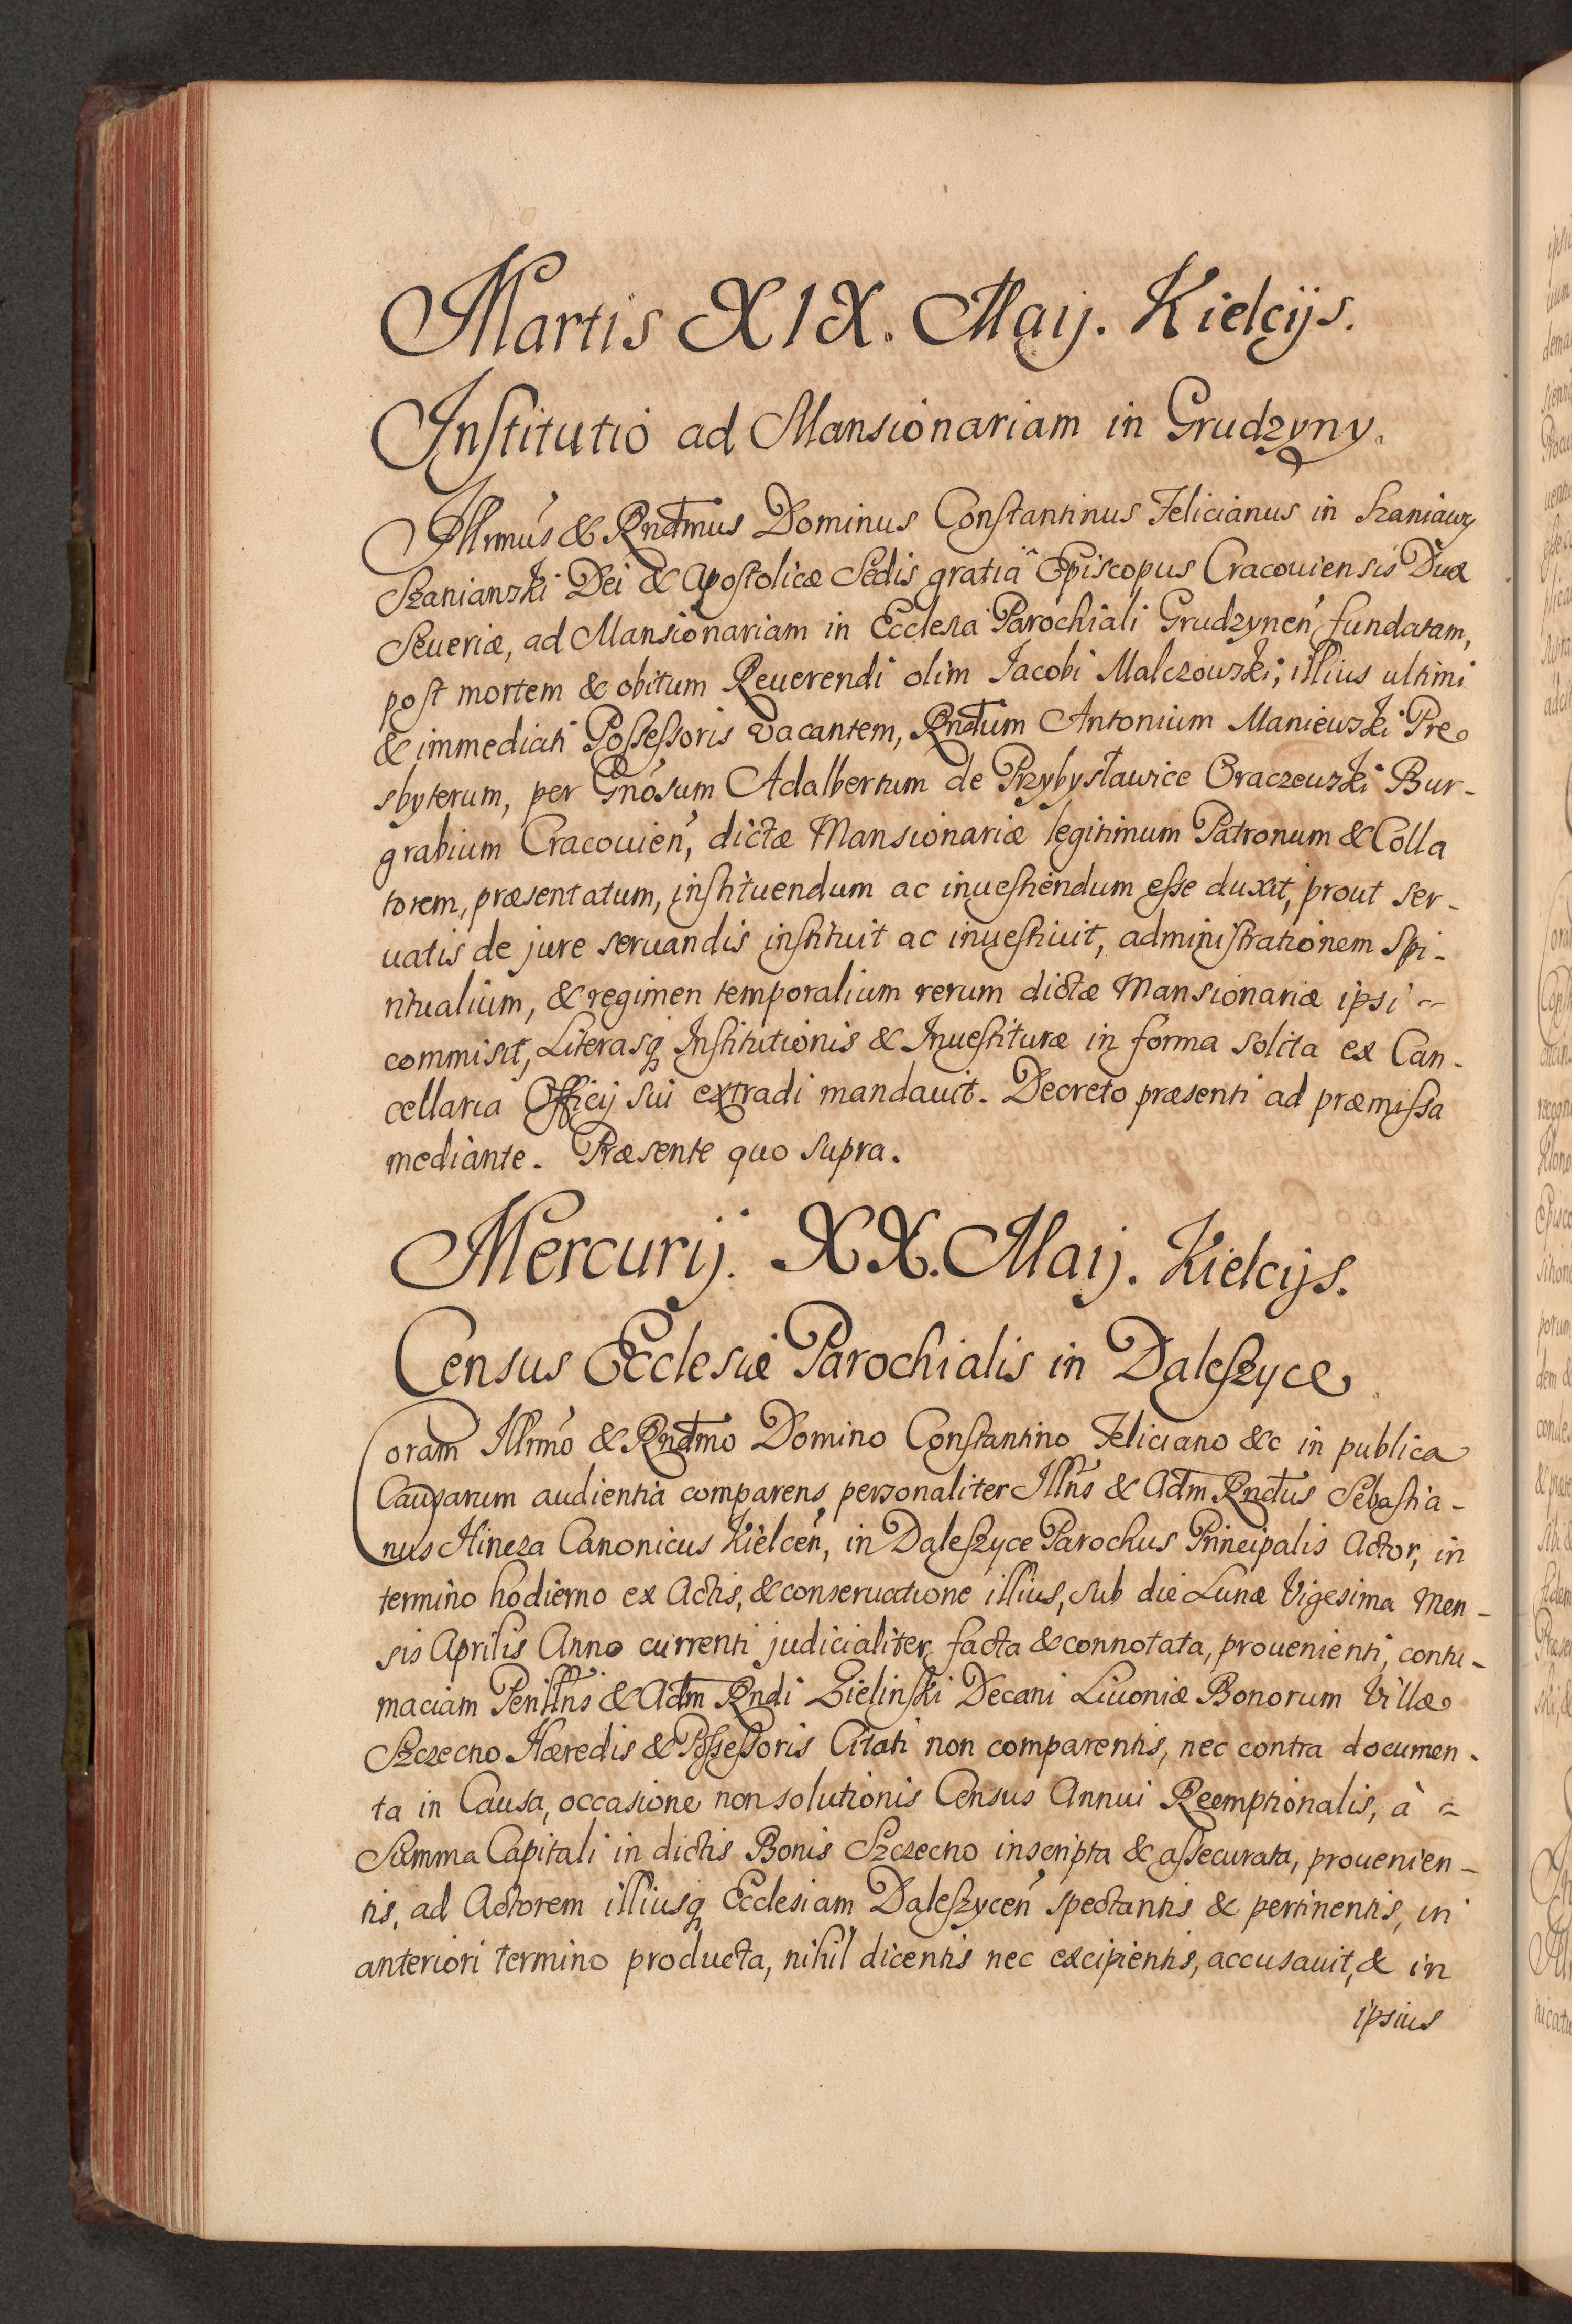 Martis XIX. Maij. Kielcijs.
Institutio ad Mansionariam in Grudzyny.
Illrmús & Rndmus Dominus Constantinus Felicianus in Szaniawy
Szaniawski Dei & Apostolicæ Sedis gratiâ Episcopus Cracouiensis Dux
Seueriæ, ad Mansionariam in Ecclesia Parochiali Grudzynen̓ fundatam,
post mortem & obitum Reuerendi olim Jacobi Malczowski, illius ultimi
& immediati Possessoris vacantem, Rndum Antonium Maniewski Pre
sbyterum, per Gnósum Adalbertum de Przybysławice Oraczewski Bur-
grabium Cracouien̓, dictæ Mansionariæ legitimum Patronum & Colla
torem, præsentatum, instituendum ac inuestiendum esse duxit, prout ser-
uatis de jure seruandis instituit ac inuestiuit, administrationem Spi-
ritualium, & regimen temporalium rerum dictæ Mansionariæ ipsi
commisit, Literasq Institutionis & Inuestituræ in forma solita ex Can-
cellaria Officij sui extradi mandauit. Decreto præsenti ad præmissa
mediante. Præsente quo supra.
Mercurij. XX. Maij. Kielcijs.
Census Ecclesiæ Parochialis in Daleszyce
Coram Illrmó & Rndmo Domino Constantino Feliciano &c in publica
Causarum audientia comparens personaliter Illris & Adm Rndus Sebastia-
nus Hincza Canonicus Kielcen̓, in Daleszyce Parochus Principalis Actor, in
termino hodierno ex Actis, & conseruatione illius, sub die Lunæ Vigesima Men-
sis Aprilis Anno currenti judicialiter facta & connotata, prouenienti, contu-
maciam Perillris & Adm Rndi Zielinski Decani Liuoniæ Bonorum Villæ
Szczecno Hæredis & Possessoris Citati non comparentis, nec contra documen-
ta in Causa, occasione non solutionis Census Annui Reemptionalis, à
Summa Capitali in dictis Bonis Szczecno inscripta & assecurata, prouenien-
tis, ad Actorem illiusq Ecclesiam Daleszycen̓ spectantis & pertinentis, in
anteriori termino producta, nihil dicentis nec excipientis, accusauit, & in
ipsius